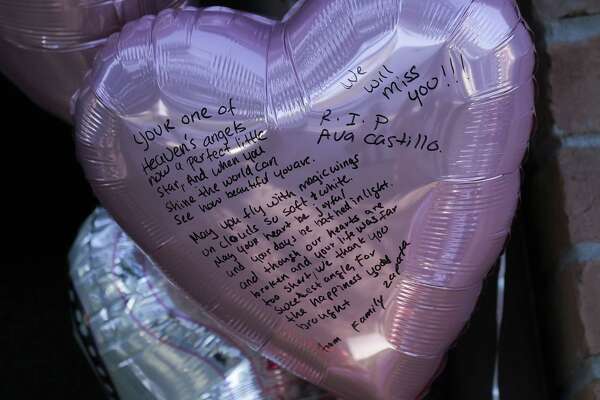 We will
miss
you!!!
R.I.P
Ava Castillo.
Your one of
Heaven's angels
now a Perfect little
star, And when you
Shine the world can
See how beautiful you are.
May you fly with magic wings
on clouds so soft & white.
May your heart be joyful
and your days be bathed in light.
and though our hearts are
broken and your life was far
too short, we thank you
sweetest angle, For
the happiness you
brought
from Family Zapata